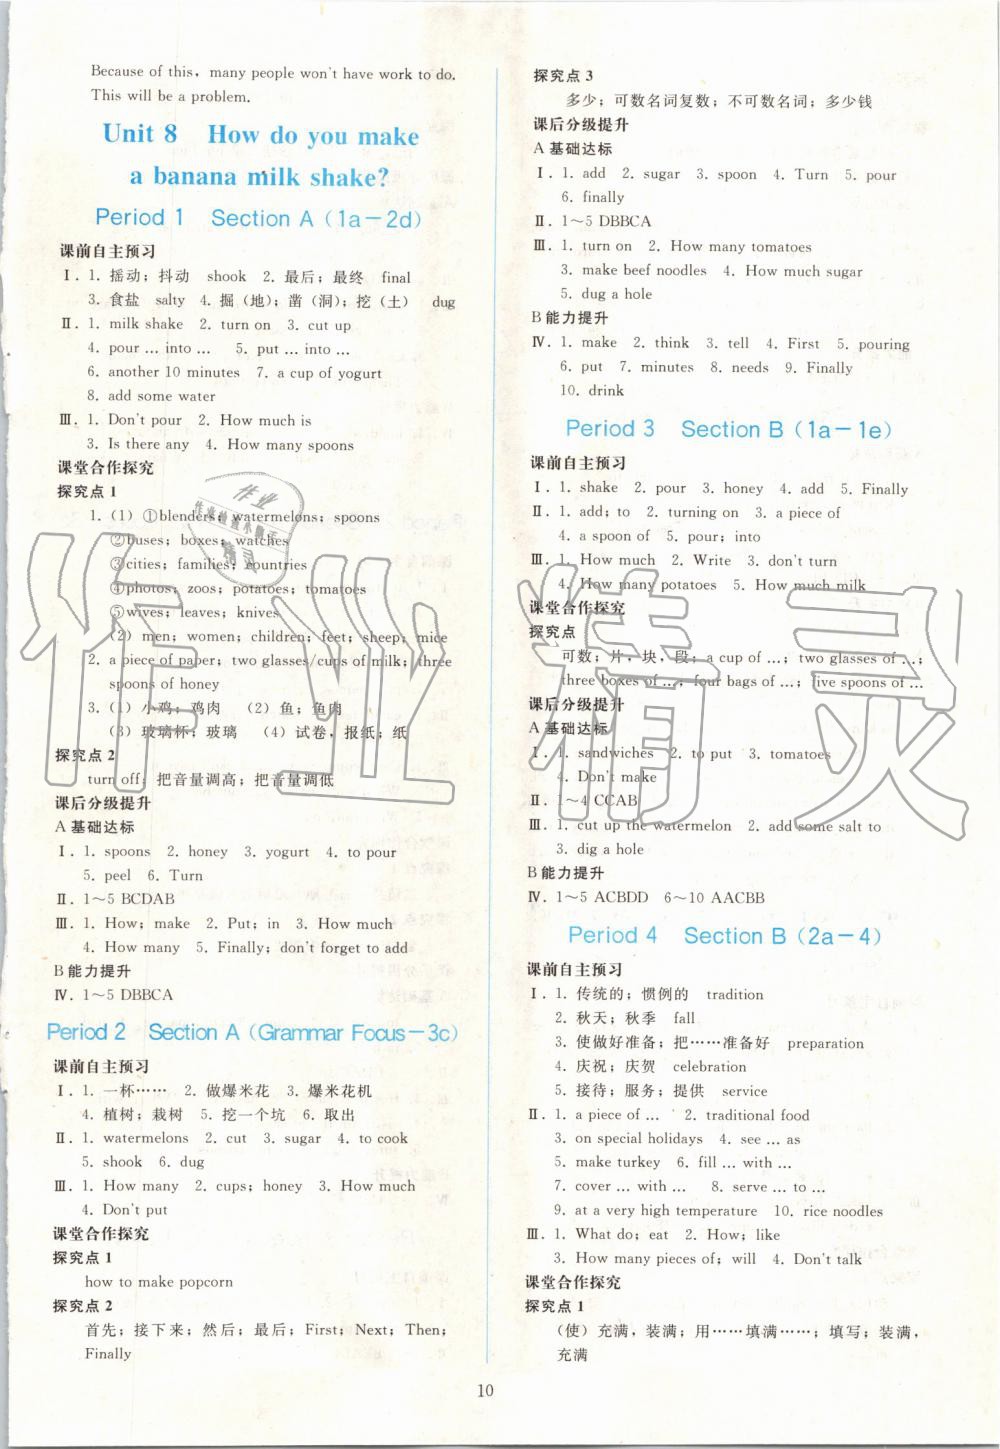 Because of this, many people won't have work to do.
This will be a problem.
Unit 8 How do you make
a banana milk shake?
Period 1 Section A (1a－2d)
课前自主预习
Ⅰ. 1. 摇动；抖动 shook 2. 最后；最终 final
3. 食盐 salty 4. 掘（地）；凿（洞）；挖（土） dug
Ⅱ. 1. milk shake 2. turn on 3. cut up
4. pour ... into ... 5. put ... into ...
6. another 10 minutes 7. a cup of yogurt
8. add some water
Ⅲ. 1. Don't pour 2. How much is
3. Is there any 4. How many spoons
课堂合作探究
探究点 1
1. (1) ①blenders; watermelons; spoons
②buses; boxes; watches
③cities; families; countries
④photos; zoos; potatoes; tomatoes
⑤wives; leaves; knives
(2) men; women; children; feet; sheep; mice
2. a piece of paper; two glasses/cups of milk; three
spoons of honey
3. (1) 小鸡；鸡肉 (2) 鱼；鱼肉
(3) 玻璃杯；玻璃 (4) 试卷，报纸；纸
探究点 2
turn off; 把音量调高；把音量调低
课后分级提升
A 基础达标
Ⅰ. 1. spoons 2. honey 3. yogurt 4. to pour
5. peel 6. Turn
Ⅱ. 1～5 BCDAB
Ⅲ. 1. How; make 2. Put; in 3. How much
4. How many 5. Finally; don't forget to add
B 能力提升
Ⅳ. 1～5 DBBCA
Period 2 Section A (Grammar Focus－3c)
课前自主预习
Ⅰ. 1. 一杯…… 2. 做爆米花 3. 爆米花机
4. 植树；栽树 5. 挖一个坑 6. 取出
Ⅱ. 1. watermelons 2. cut 3. sugar 4. to cook
5. shook 6. dug
Ⅲ. 1. How many 2. cups; honey 3. How much
4. Don't put
课堂合作探究
探究点 1
how to make popcorn
探究点 2
首先；接下来；然后；最后；First; Next; Then;
Finally
探究点 3
多少；可数名词复数；不可数名词；多少钱
课后分级提升
A 基础达标
Ⅰ. 1. add 2. sugar 3. spoon 4. Turn 5. pour
6. finally
Ⅱ. 1～5 DBBCA
Ⅲ. 1. turn on 2. How many tomatoes
3. make beef noodles 4. How much sugar
5. dug a hole
B 能力提升
Ⅳ. 1. make 2. think 3. tell 4. First 5. pouring
6. put 7. minutes 8. needs 9. Finally
10. drink
Period 3 Section B (1a－1e)
课前自主预习
Ⅰ. 1. shake 2. pour 3. honey 4. add 5. Finally
Ⅱ. 1. add; to 2. turning on 3. a piece of
4. a spoon of 5. pour; into
Ⅲ. 1. How much 2. Write 3. don't turn
4. How many potatoes 5. How much milk
课堂合作探究
探究点
可数；片，块，段；a cup of ...; two glasses of ...;
three boxes of ...; four bags of ...; five spoons of ...
课后分级提升
A 基础达标
Ⅰ. 1. sandwiches 2. to put 3. tomatoes
4. Don't make
Ⅱ. 1～4 CCAB
Ⅲ. 1. cut up the watermelon 2. add some salt to
3. dig a hole
B 能力提升
Ⅳ. 1～5 ACBDD 6～10 AACBB
Period 4 Section B (2a－4)
课前自主预习
Ⅰ. 1. 传统的；惯例的 tradition
2. 秋天；秋季 fall
3. 使做好准备；把……准备好 preparation
4. 庆祝；庆贺 celebration
5. 接待；服务；提供 service
Ⅱ. 1. a piece of ... 2. traditional food
3. on special holidays 4. see ... as
5. make turkey 6. fill ... with ...
7. cover ... with ... 8. serve ... to ...
9. at a very high temperature 10. rice noodles
Ⅲ. 1. What do; eat 2. How; like
3. How many pieces of; will 4. Don't talk
课堂合作探究
探究点 1
（使）充满，装满；用……填满……；填写；装满，
充满
10
作业精灵